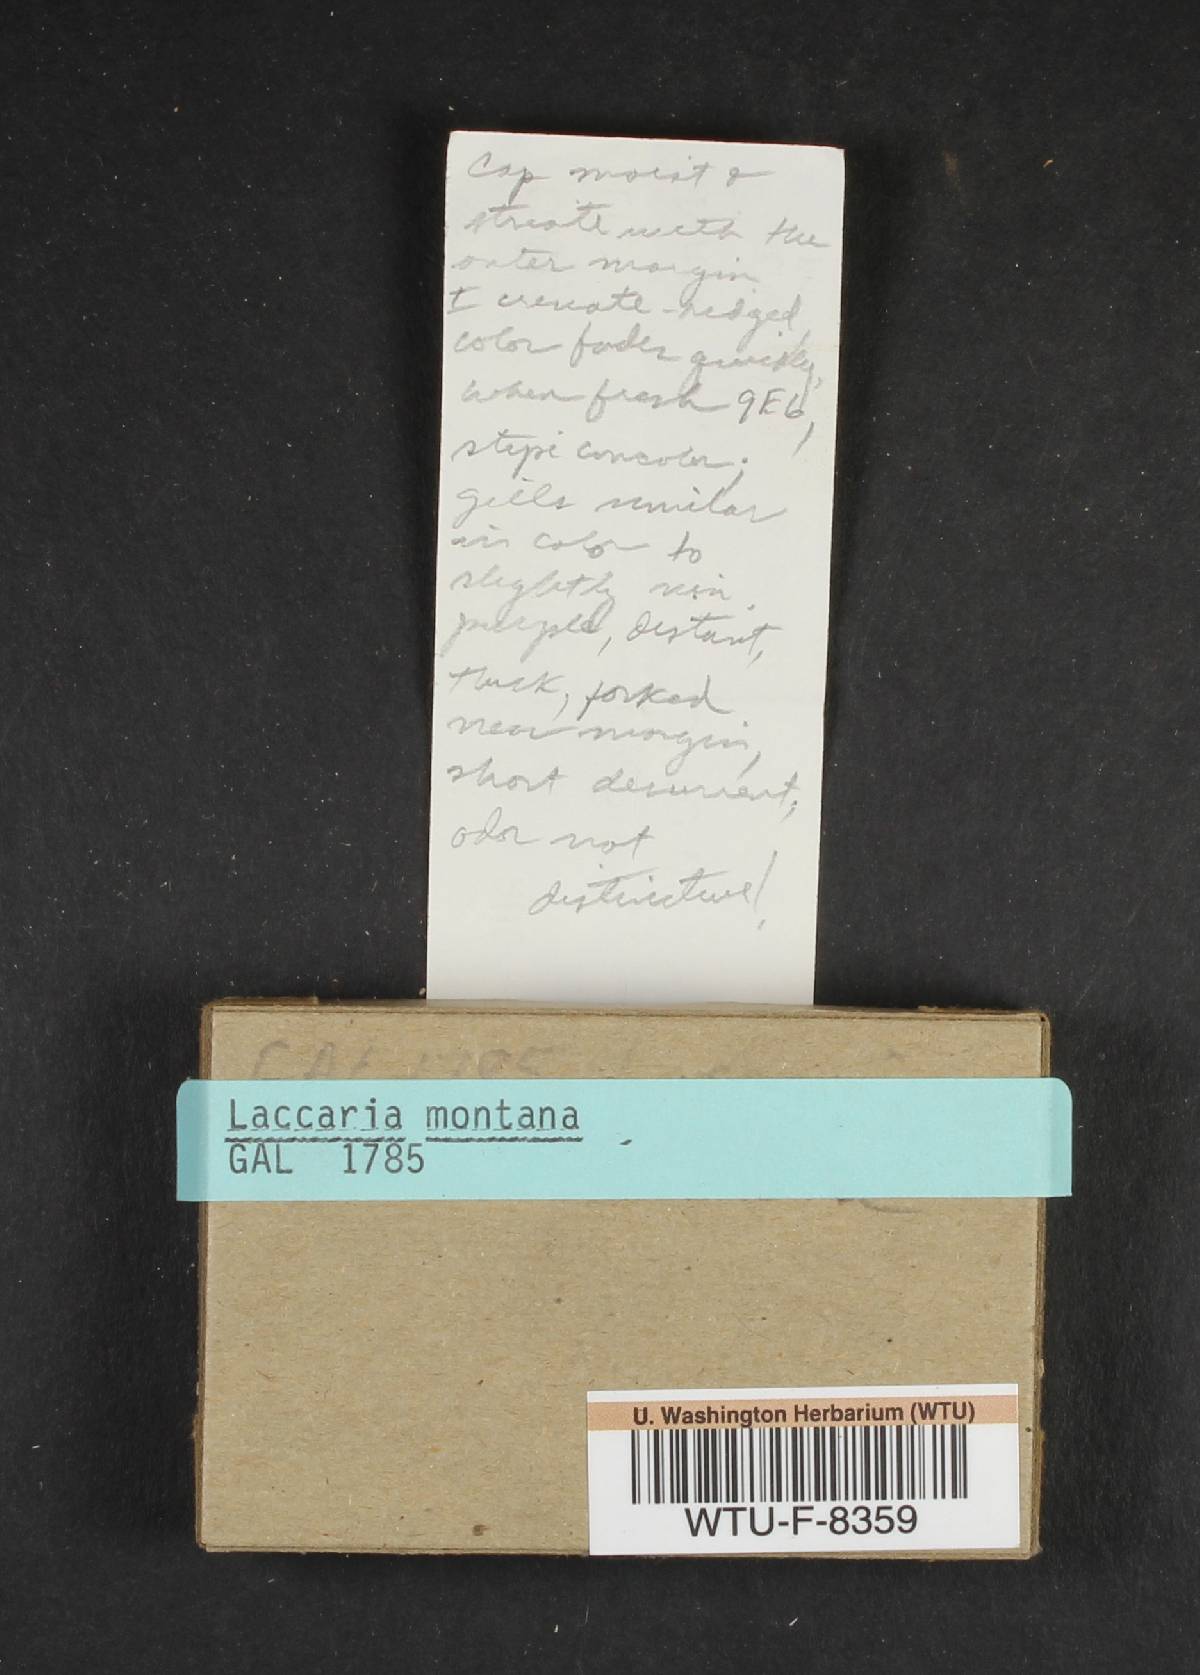 Cap moist &
striate with the
outer margin
± crenate-ridged,
color fades quickly,
when fresh 9E6,
stipe concolor;
gills similar
in color to
slightly vin.
purple, distant,
thick, forked
near margin,
short decurrent;
odor not
distinctive!
GAL 1785
Laccaria montana
GAL 1785
U. Washington Herbarium (WTU)
WTU-F-8359